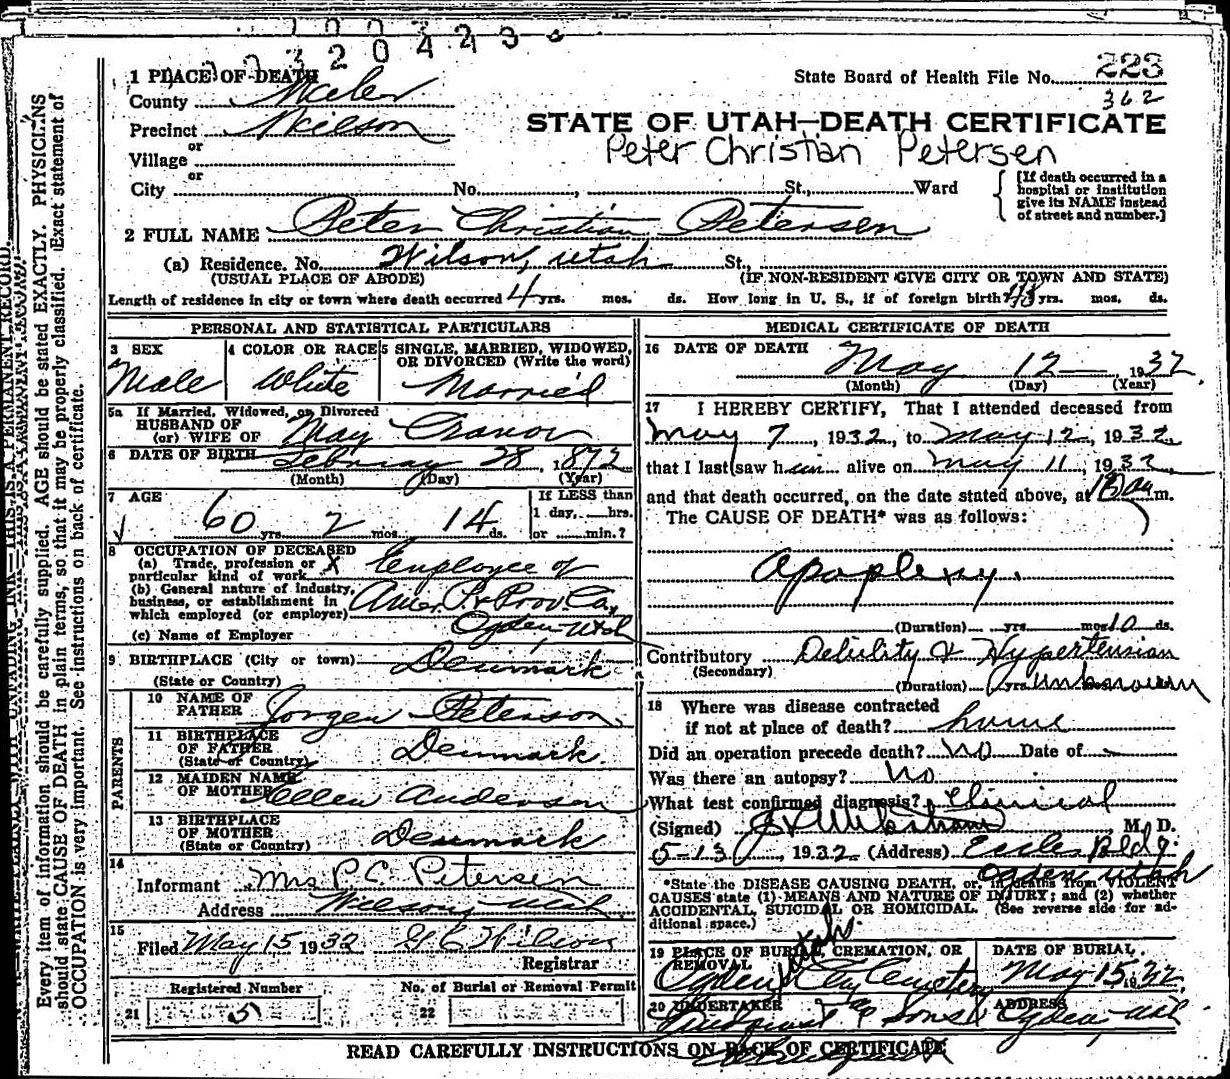 1003 20423
1 PLACE OF DEATH
State Board of Health File No. 223
County Weber
362
Precinct Wilson
STATE OF UTAH—DEATH CERTIFICATE
or
Peter Christian Petersen
Village
or
City No. , St., Ward
[If death occurred in a hospital or institution give its NAME instead of street and number.]
2 FULL NAME Peter Christian Petersen
(a) Residence. No. Wilson, Utah St.,
(USUAL PLACE OF ABODE) (IF NON-RESIDENT GIVE CITY OR TOWN AND STATE)
Length of residence in city or town where death occurred 4 yrs. mos. ds. How long in U. S., if of foreign birth? yrs. mos. ds.
PERSONAL AND STATISTICAL PARTICULARS
3 SEX 4 COLOR OR RACE 5 SINGLE, MARRIED, WIDOWED, OR DIVORCED (Write the word)
Male White Married
5a If Married, Widowed, or Divorced
HUSBAND OF
(or) WIFE OF May
6 DATE OF BIRTH February 28, 1872
(Month) (Day) (Year)
7 AGE If LESS than
1 day, hrs.
60 yrs. 2 mos. 14 ds. or min.?
8 OCCUPATION OF DECEASED
(a) Trade, profession or particular kind of work X Employee of
(b) General nature of industry, business, or establishment in which employed (or employer) Amer. P. & Prov. Co.
Ogden Utah
(c) Name of Employer
9 BIRTHPLACE (City or town) Denmark
(State or Country)
PARENTS
10 NAME OF FATHER Jorgen Peterson
11 BIRTHPLACE OF FATHER Denmark
(State or Country)
12 MAIDEN NAME OF MOTHER Ellen Anderson
13 BIRTHPLACE OF MOTHER Denmark
(State or Country)
14
Informant Mrs P.C. Petersen
Address Wilson, Utah
15
Filed May 15 1932 Wilson
Registrar
Registered Number No. of Burial or Removal Permit
21 5 22
MEDICAL CERTIFICATE OF DEATH
16 DATE OF DEATH
May 12 1932
(Month) (Day) (Year)
17 I HEREBY CERTIFY, That I attended deceased from
May 7, 1932, to May 12, 1932
that I last saw him alive on May 11, 1932
and that death occurred, on the date stated above, at m.
The CAUSE OF DEATH* was as follows:
Apoplexy.
(Duration) yrs mos 10 ds.
Contributory Debility & Hypertension
(Secondary)
(Duration) yrs unknown
18 Where was disease contracted
if not at place of death? home
Did an operation precede death? No Date of
Was there an autopsy? No
What test confirmed diagnosis? Clinical
(Signed) M. D.
5-13, 1932 (Address) Eccles Bldg.
Ogden Utah
*State the DISEASE CAUSING DEATH, or, in deaths from VIOLENT
CAUSES state (1) MEANS AND NATURE OF INJURY; and (2) whether
ACCIDENTAL, SUICIDAL OR HOMICIDAL. (See reverse side for ad-
ditional space.)
19 PLACE OF BURIAL, CREMATION, OR REMOVAL DATE OF BURIAL
Ogden City Cemetery Utah. May 15, 1932
20 UNDERTAKER ADDRESS
& Sons Ogden, Utah
READ CAREFULLY INSTRUCTIONS ON BACK OF CERTIFICATE
Every item of information should be carefully supplied. AGE should be stated EXACTLY. PHYSICIANS
should state CAUSE OF DEATH in plain terms, so that it may be properly classified. Exact statement of
OCCUPATION is very important. See instructions on back of certificate.